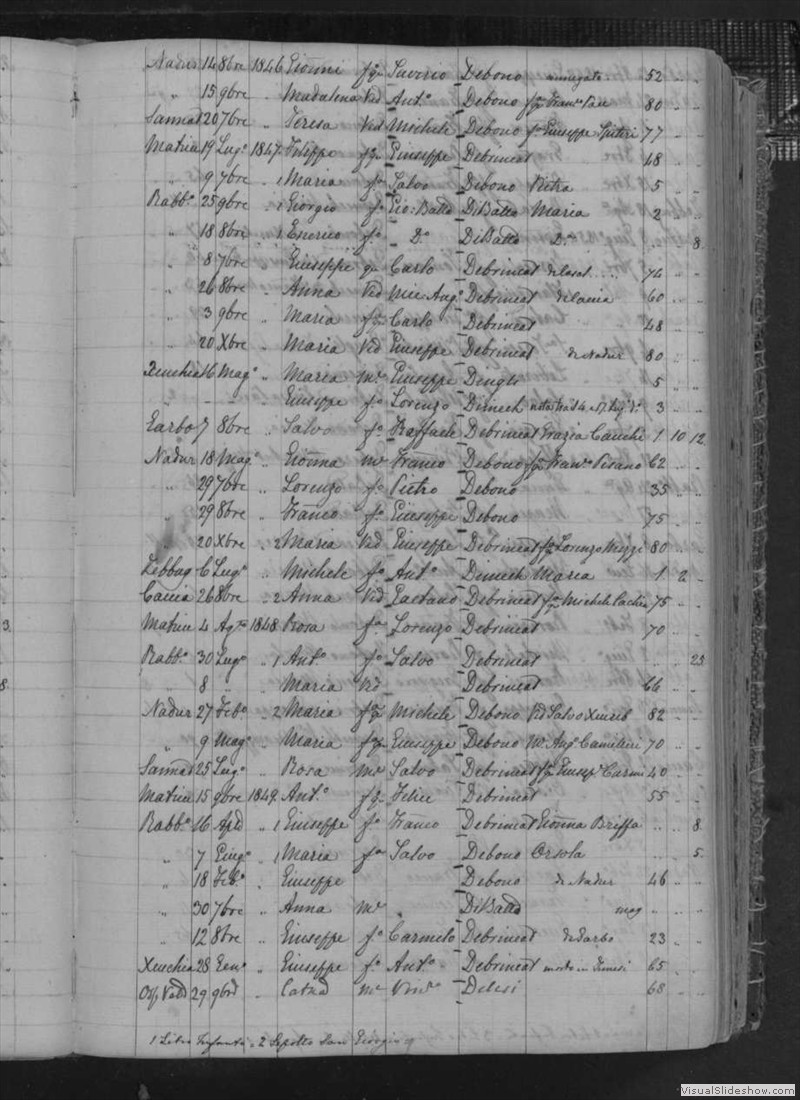 Nadur 14 8bre 1846 Gionni fq Saverio Debono annegato 52 " "
" 15 9bre " Madalena Vid Ant.o Debono fq Fran.co 80 " "
Sannat 20 7bre " Teresa Vid Michele Debono fq Giuseppe Spiteri 77 " "
Matrice 19 Lug.o 1847 Filippo fq Giuseppe Debrincat 48 " "
" 9 7bre " 1 Maria fa Salvo Debono Pietra 5 " "
Rabb.o 25 9bre " 1 Giorgio fo Gio: Batta DiBatta Maria 2 " "
" 18 8bre " 1 Enerico fo " D.o DiBatta D.a " " 8
" 8 7bre " Giuseppe q Carlo Debrincat 74 " "
" 26 8bre " Anna Vid Mic Ang.o Debrincat 60 " "
" 3 9bre " Maria fq Carlo Debrincat 48 " "
" 20 Xbre " Maria Vid Giuseppe Debrincat de Nadur 80 " "
Xeuchia 16 Mag.o " Maria m.e Giuseppe 5 " "
" - - " Giuseppe fo Lorenzo Dimech 3 " "
Garbo 7 8bre " Salvo fo Raffaele Debrincat Grazia Cauchi 1 10 12
Nadur 18 Mag.o " Gionna m.e Franco Debono fq Fran.co Pisano 62 " "
" 29 7bre " Lorenzo fo Pietro Debono 35 " "
" 29 8bre " Franco fo Giuseppe Debono 75 " "
20 Xbre " 2 Maria Vid Giuseppe Debrincat fq Lorenzo 80 " "
Zebbug 6 Lug.o " Michele fo Ant.o Dimech Maria 1 2 "
Caccia 26 8bre " 2 Anna Vid Gaetano Debrincat fq Michele 75 " "
Matrice 4 Ag.to 1848 Rosa fa Lorenzo Debrincat 70 " "
Rabb.o 30 Lug.o " 1 Ant.o fo Salvo Debrincat " " 25
" 8 " " Maria Vid Debrincat 66 " "
Nadur 27 Feb.o " 2 Maria fq Michele Debono Vid Salvo Xuereb 82 " "
" 9 Mag.o " Maria fq Giuseppe Debono m.e Ang.o Camilleri 70 " "
Sannat 25 Lug.o " Rosa m.e Salvo Debrincat fq Giusep.e 40 " "
Matrice 15 9bre 1849 Ant.o fq Felice Debrincat 55 " "
Rabb.o 16 Apl " 1 Giuseppe fo Franco Debrincat Gionna Briffa " " 8
" 7 Giug.o " 1 Maria fa Salvo Debono Orsola " " 5
" 18 Feb.o " Giuseppe Debono de Nadur 46 " "
" 30 7bre " Anna m.e " DiBatta mag " " "
" 12 8bre " Giuseppe fo Carmelo Debrincat de Garbo 23 " "
Xeuchia 28 Gen.o " Giuseppe fo Ant.o Debrincat morto in Tunesi 65 " "
29 9bre " m.e 68 " "
1 Libro Infanti = 2 Sepolto San Giorgio
3
8
VisualSlideshow.com